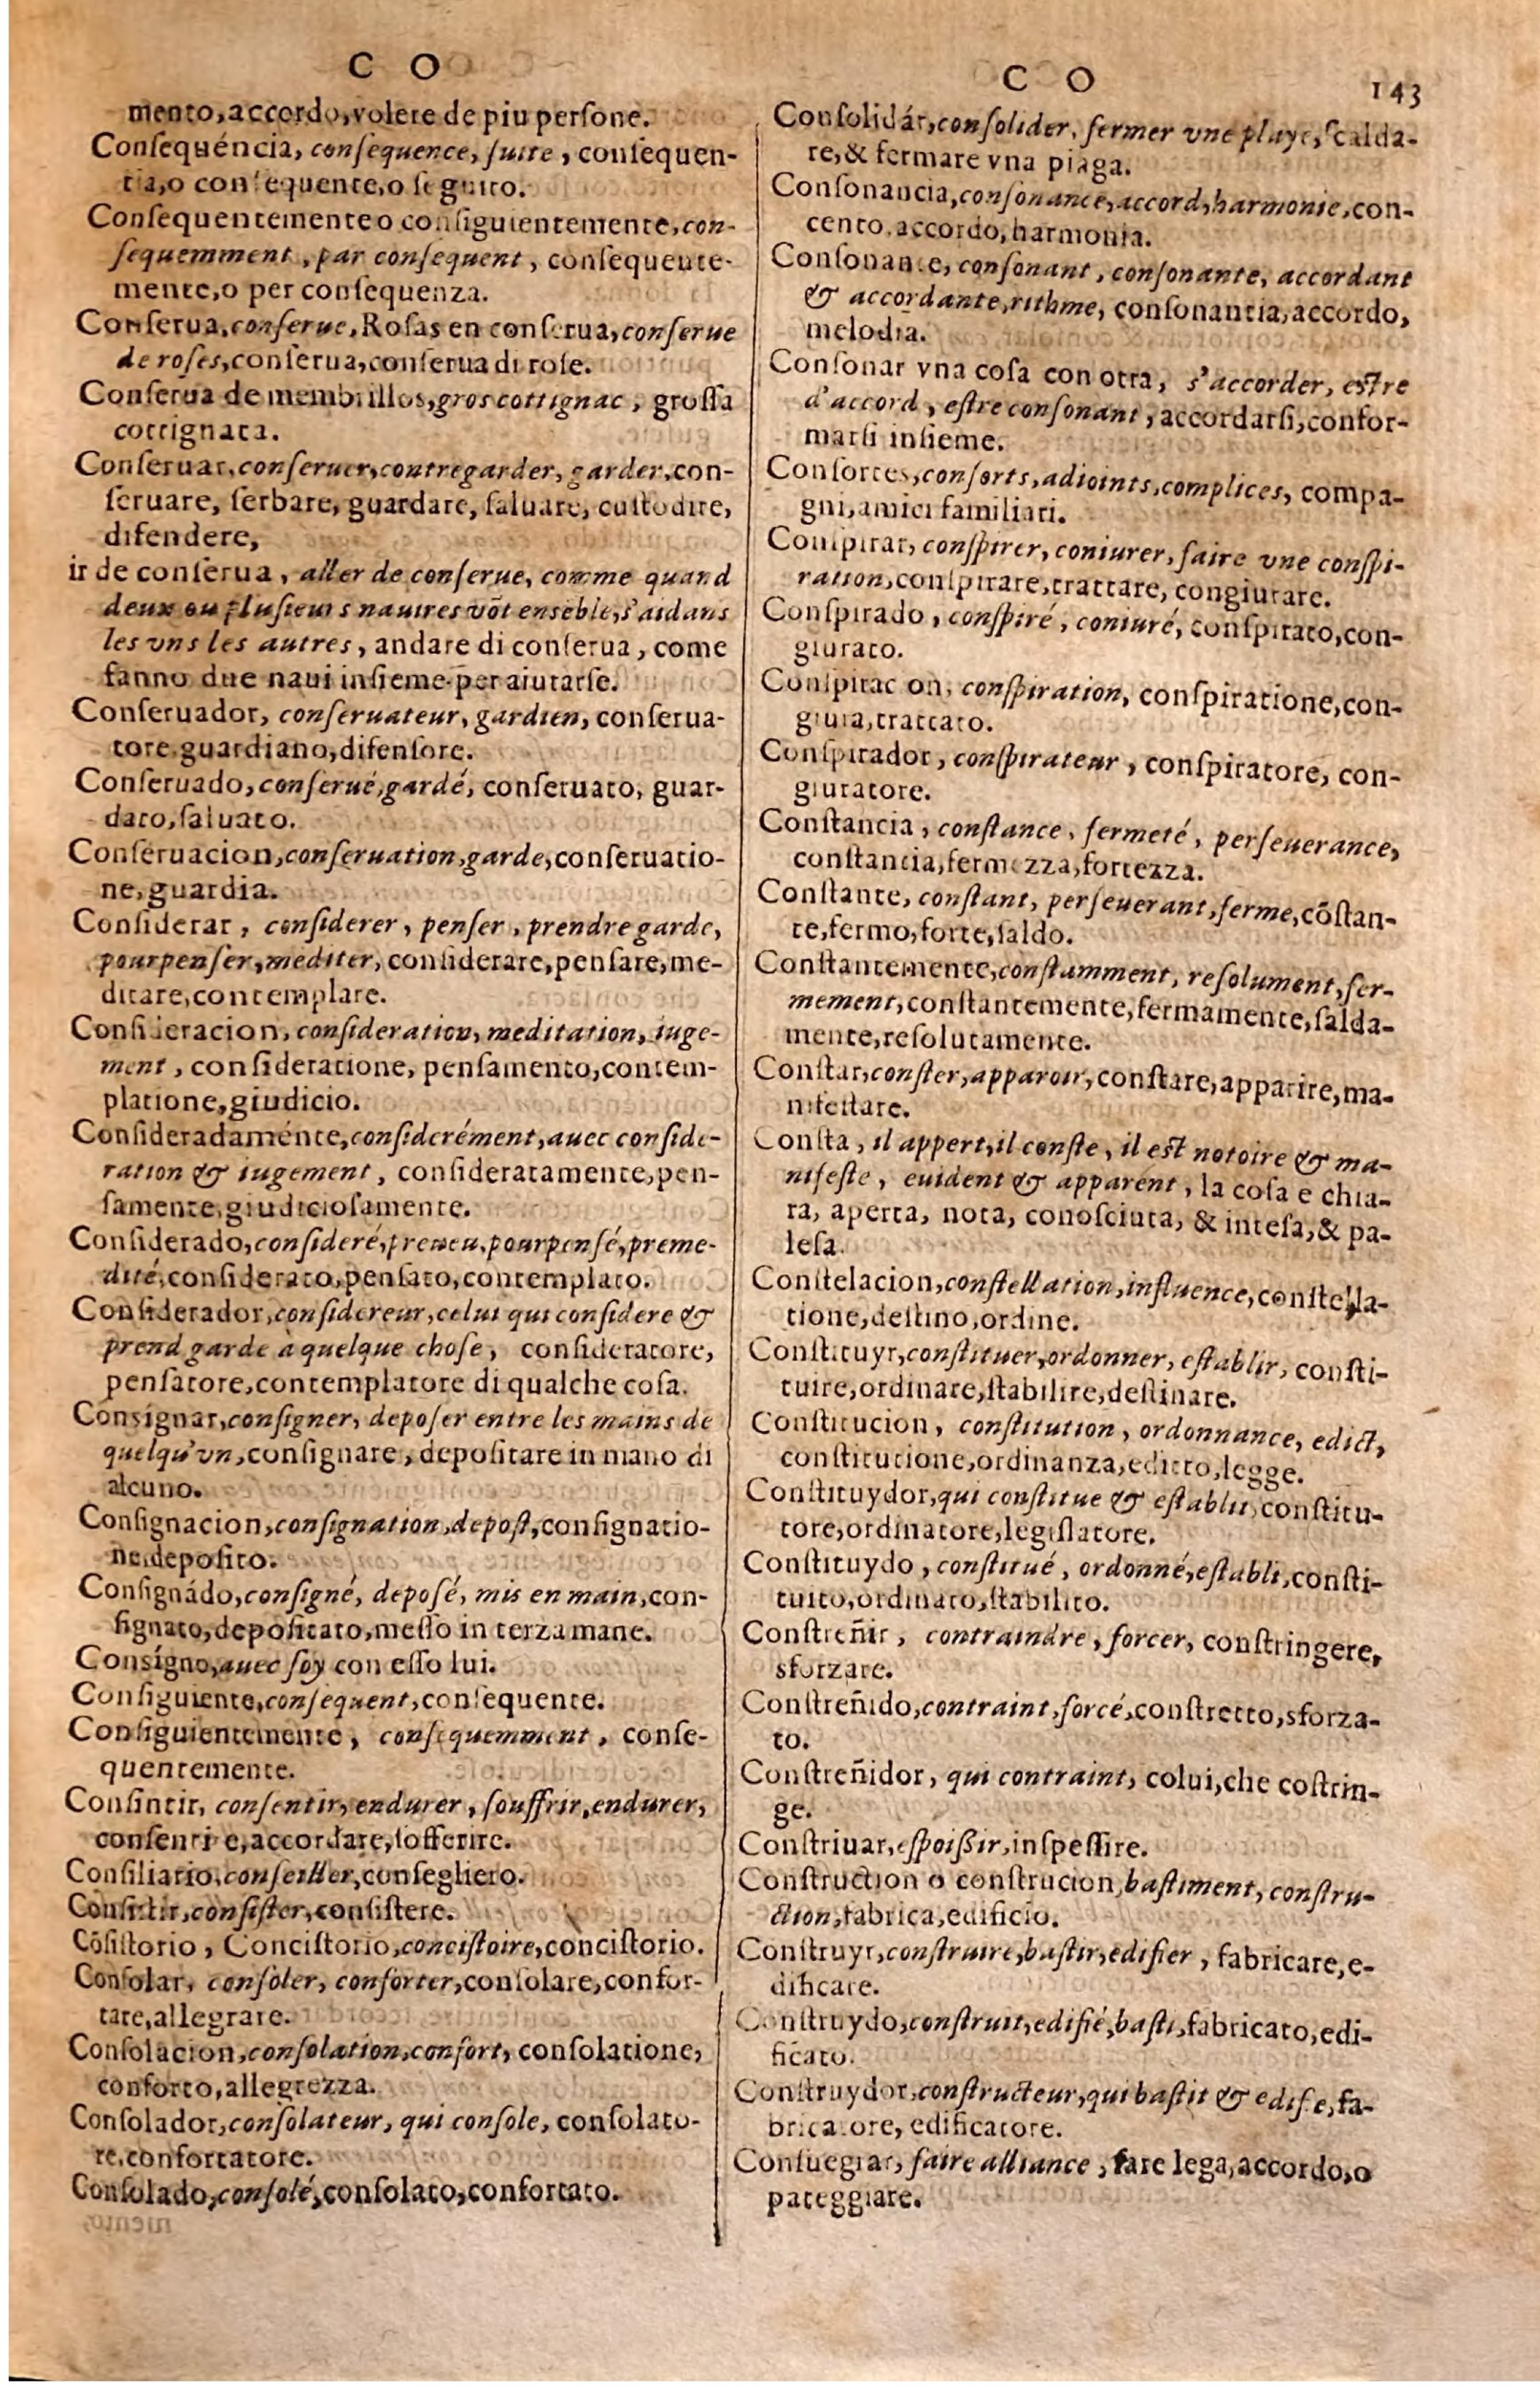 C O
mento,accordo,volere de piu perſone.
Conſequéncia, conſequence, ſuite, conſequen-
tia,o conſequente,o ſeguito.
Conſequentemente o conſiguientemente,con-
ſequemment, par conſequent, conſequente-
mente,o per conſequenza.
Conſerua,conſerue,Roſas en conſerua,conſerue
de roſes,conſerua,conſerua di roſe.
Conſerua de membrillos,gros cottignac, groſſa
cottignata.
Conſeruar,conſeruer,contregarder, garder,con-
ſeruare, ſerbare, guardare, ſaluare, cuſtodire,
difendere,
ir de conſerua, aller de conſerue, comme quand
deux ou pluſieurs nauires võt enseble,s'aidans
les vns les autres, andare di conſerua, come
fanno due naui inſieme per aiutarſe.
Conſeruador, conſeruateur, gardien, conſerua-
tore,guardiano,difenſore.
Conſeruado,conſerué,gardé, conſeruato, guar-
dato,ſaluato.
Conſeruacion,conſeruation,garde,conſeruatio-
ne,guardia.
Conſiderar, conſiderer, penſer, prendre garde,
pourpenſer,mediter, conſiderare,penſare,me-
ditare,contemplare.
Conſideracion, conſideration, meditation, iuge-
ment, conſideratione, penſamento,contem-
platione,giudicio.
Conſideradaménte,conſiderément,auec conſide-
ration & iugement, conſideratamente,pen-
ſamente,giudicioſamente.
Conſiderado,conſideré,preueu,pourpenſé,preme-
dité,conſiderato,penſato,contemplato.
Conſiderador,conſidereur,celui qui conſidere &
prend garde à quelque choſe, conſideratore,
penſatore,contemplatore di qualche coſa.
Conſignar,conſigner, depoſer entre les mains de
quelqu'vn,conſignare, depoſitare in mano di
alcuno.
Conſignacion,conſignation,depoſt,conſignatio-
ne,depoſito.
Conſignádo,conſigné, depoſé, mis en main,con-
ſignato,depoſitato,meſſo in terza mane.
Conſigno,auec ſoy con eſſo lui.
Conſiguiente,conſequent,conſequente.
Conſiguientemente, conſequemment, conſe-
quentemente.
Conſintir, conſentir,endurer, ſouffrir,endurer,
conſentire,accordare,ſofferire.
Conſiliario,conſeiller,conſegliero.
Conſiſtir,conſiſter,conſiſtere.
Cõſiſtorio, Conciſtorio,conciſtoire,conciſtorio.
Conſolar, conſoler, conforter,conſolare,confor-
tare,allegrare.
Conſolacion,conſolation,confort, conſolatione,
conforto,allegrezza.
Conſolador,conſolateur, qui conſole, conſolato-
re,confortatore.
Conſolado,conſolé,conſolato,confortato.
C O 143
Conſolidár,conſolider, fermer vne playe, ſcalda-
re,& fermare vna piaga.
Conſonancia,conſonance,accord,harmonie,con-
cento,accordo,harmonia.
Conſonante, conſonant, conſonante, accordant
& accordante,rithme, conſonantia,accordo,
melodia.
Conſonar vna coſa con otra, s'accorder, eſtre
d'accord, eſtre conſonant, accordarſi,confor-
marſi inſieme.
Conſortes,conſorts,adioints,complices, compa-
gni,amici familiari.
Conſpirar, conſpirer, coniurer, faire vne conſpi-
ration,conſpirare,trattare, congiurare.
Conſpirado, conſpiré, coniuré, conſpirato,con-
giurato.
Conſpirac on, conſpiration, conſpiratione,con-
giura,trattato.
Conſpirador, conſpirateur, conſpiratore, con-
giuratore.
Conſtancia, conſtance, fermeté, perſeuerance,
conſtantia,fermezza,fortezza.
Conſtante, conſtant, perſeuerant,ferme,cõſtan-
te,fermo,forte,ſaldo.
Conſtantemente,conſtamment, reſolument,fer-
mement,conſtantemente,fermamente,ſalda-
mente,reſolutamente.
Conſtar,conſter,apparoir,conſtare,apparire,ma-
nifeſtare.
Conſta, il appert,il conſte, il eſt notoire & ma-
nifeſte, euident & apparent, la coſa e chia-
ra, aperta, nota, conoſciuta, & inteſa,& pa-
leſa.
Conſtelacion,conſtellation,influence,conſtella-
tione,deſtino,ordine.
Conſtituyr,conſtituer,ordonner, eſtablir, conſti-
tuire,ordinare,ſtabilire,deſtinare.
Conſtitucion, conſtitution, ordonnance, edict,
conſtitutione,ordinanza,editto,legge.
Conſtituydor,qui conſtitue & eſtablit,conſtitu-
tore,ordinatore,legiſlatore.
Conſtituydo, conſtitué, ordonné,eſtabli,conſti-
tuito,ordinato,ſtabilito.
Conſtreñir, contraindre, forcer, conſtringere,
sforzare.
Conſtreñido,contraint,forcé,conſtretto,sforza-
to.
Conſtreñidor, qui contraint, colui,che coſtrin-
ge.
Conſtriuar,eſpoißir,inſpeſſire.
Conſtruction o conſtrucion,baſtiment, conſtru-
ction,fabrica,edificio.
Conſtruyr,conſtruire,baſtir,edifier, fabricare,e-
dificare.
Conſtruydo,conſtruit,edifié,baſti,fabricato,edi-
ficato.
Conſtruydor,conſtructeur,qui baſtit & edifie,fa-
bricatore, edificatore.
Conſuegrar, faire alliance, fare lega,accordo,o
pateggiare.